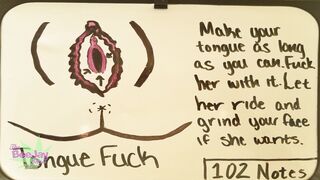 Make your
tongue as long
as you can. Fuck
her with it. Let
her ride and
grind your face
if she wants.
Tongue Fuck
102 Notes
BeeJay